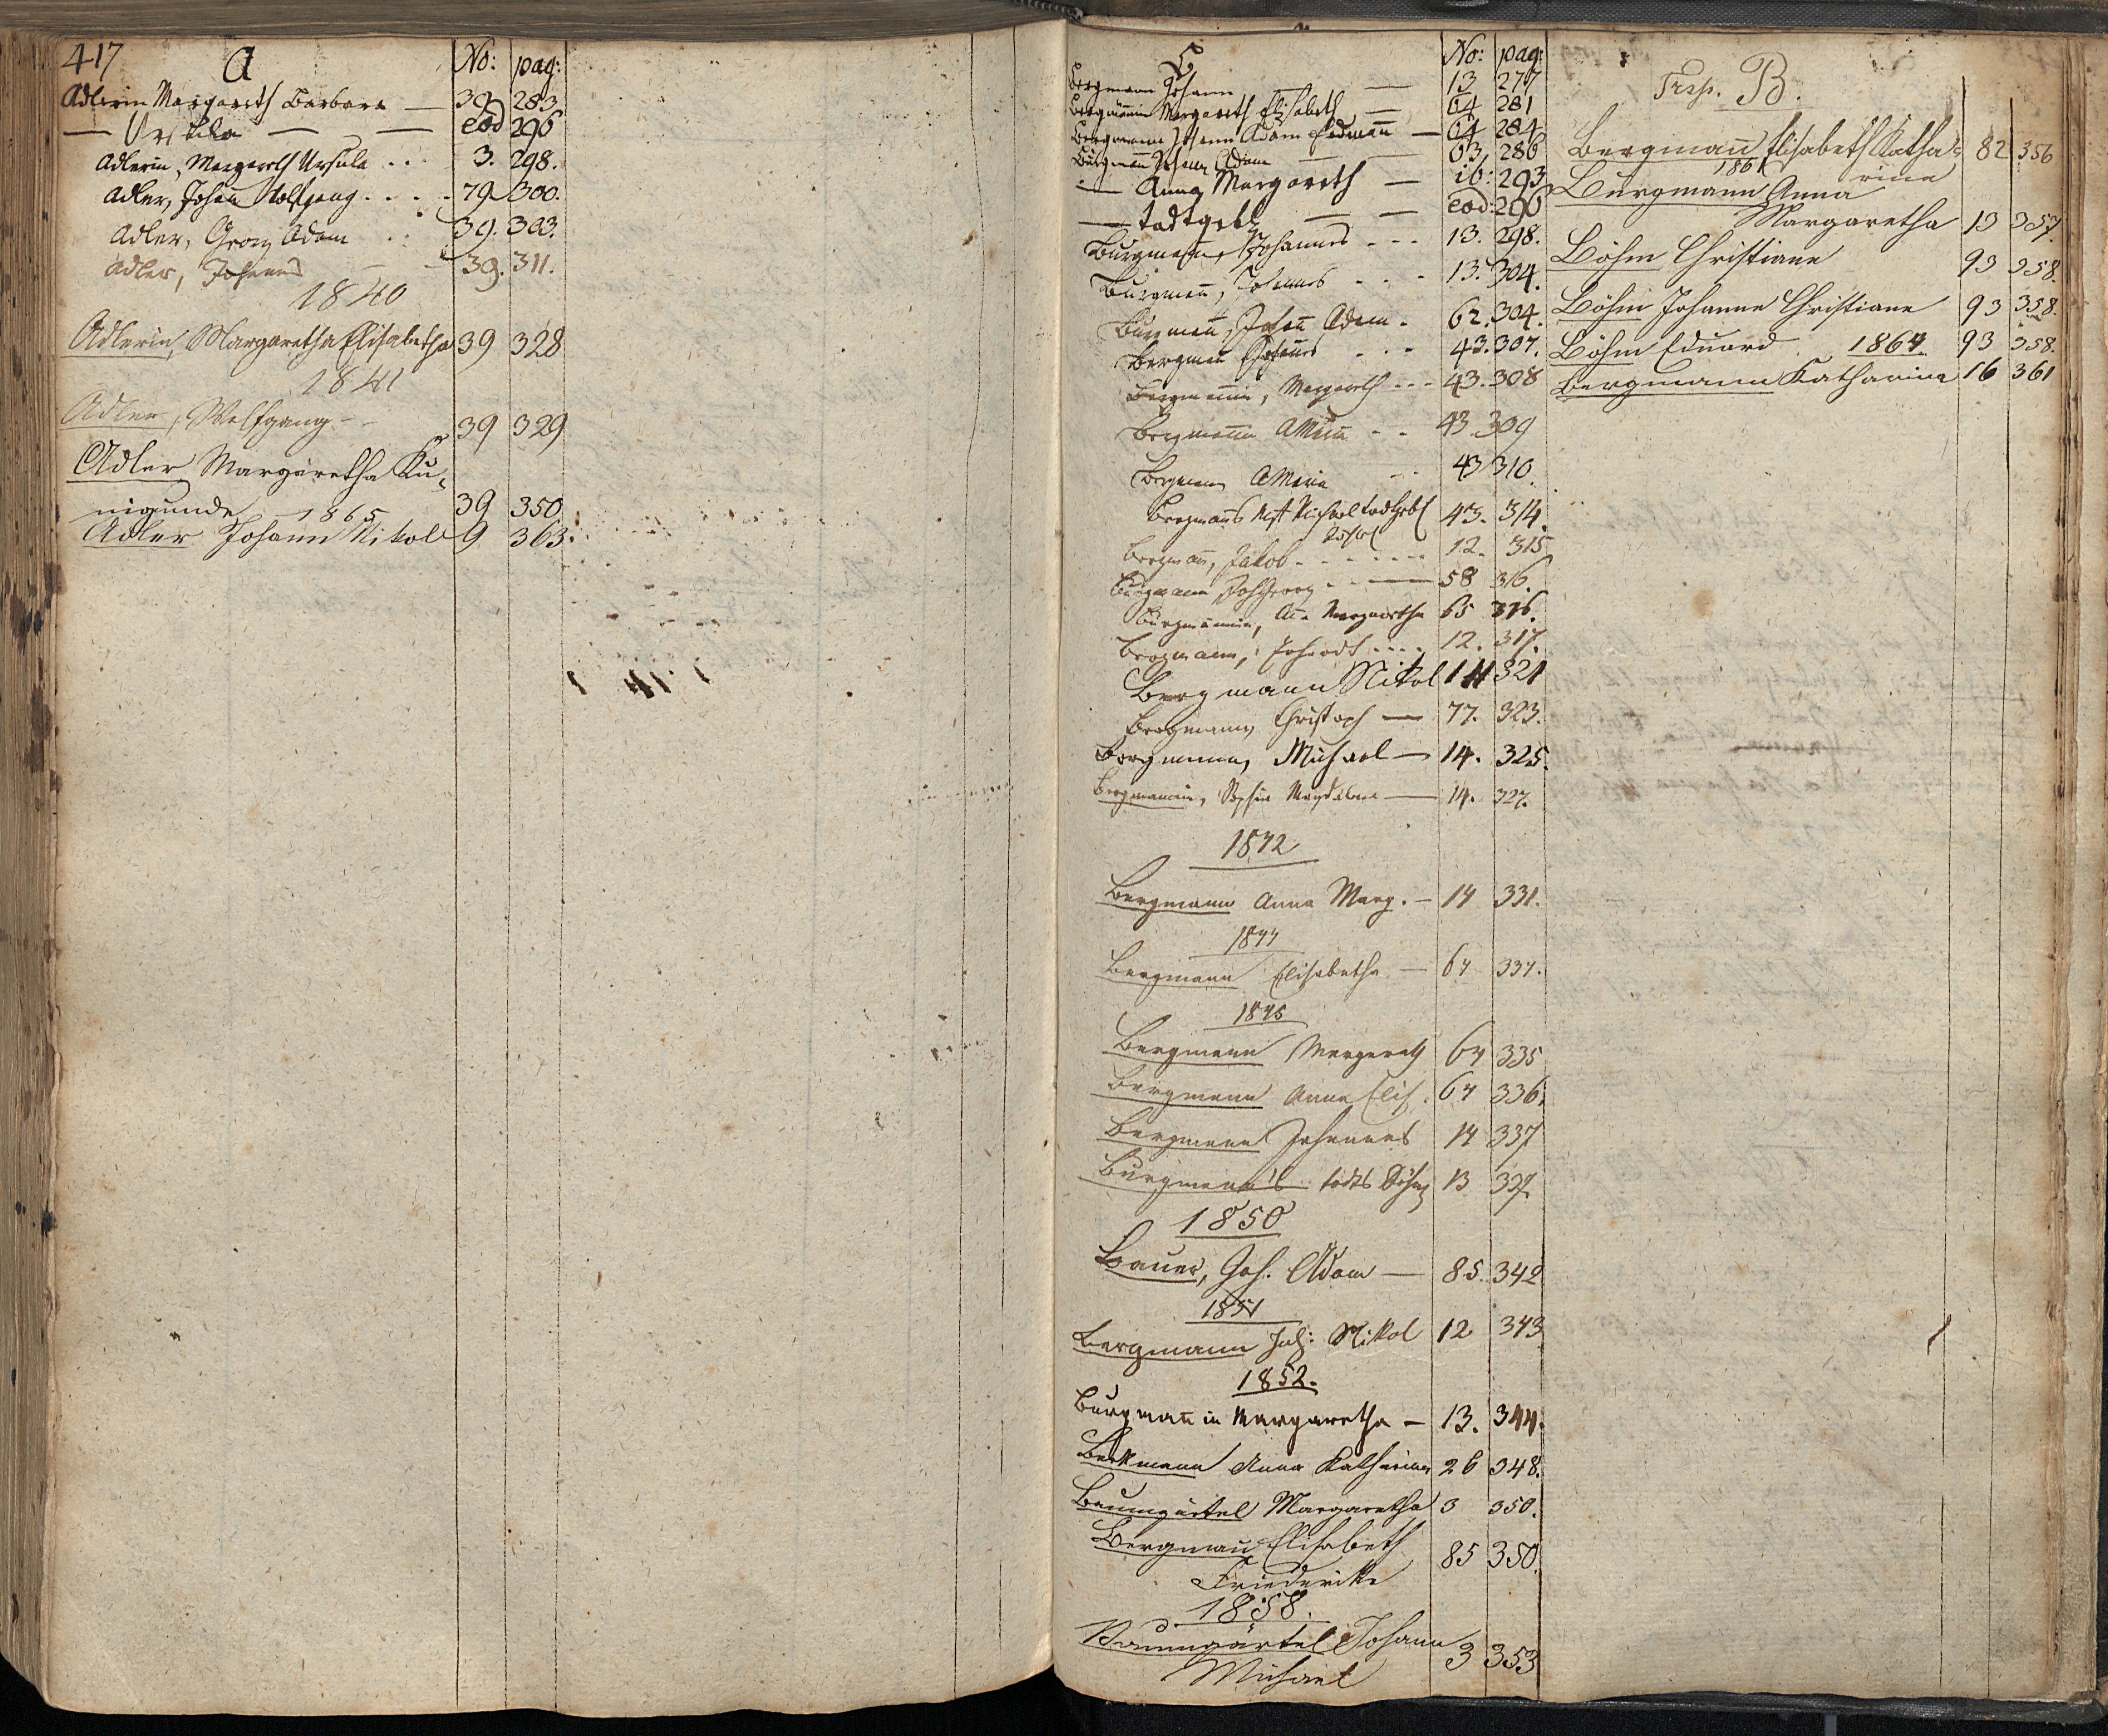 417 A No: pag:
Adlerin Margareth Barbara — 39 283
— Ursula — — eod 296
Adlerin, Margareth Ursula . . 3. 298.
Adler, Johañ Wolfgang . . . . 79 300.
Adler, Georg Adam . . 39. 303.
Adler, Johannes — — 39. 311.
1840
Adlerin, Margaretha Elisabetha 39 328
1841
Adler, Wolfgang - - 39 329
Adler Margaretha Ku-
nigunde 39 350
1865
Adler Johann Nikol 9 363.
B No: pag:
Bergmann Johann — 13 277
Bergmännin Margareth Elisabeth — 64 281
Bergmann Johann Adam Erdmañ — 64 284
Burgmañ Johann Adam — 63 286
— Anna Margareth — ib: 293
— todtgeb — — eod: 296
Burgmann, Johannes - - - 13. 298.
Burgmañ, Johannes - - - 13. 304.
Burgmañ, Johañ Adam - 62. 304.
Bergmañ Johannes - - - 43. 307.
Bergmännin, Margareth - - - 43. 308
Bergmañin AMaria - - 43. 309
Bergmann AMaria - - 43 310.
Bergmanns Michael todtgeb 43. 314.
Bergmañ, Jakob - - - - - 12. 315
Burgmann Joh Georg - - — 58 316.
Burgmännin, Añ. Margaretha 65 316.
Bergmann, - - - - 12. 317.
Bergmann Nikol 14 321
Bergmann, Christoph — 77. 323.
Bergmann, Michael — 14. 325.
Bergmannin, Sophia Magdalena — 14. 327.
1842
Bergmann Anna Marg. — 14 331.
1844
Bergmann Elisabetha — 64 334.
1845
Bergmann Margareth 64 335
Bergmann Anna Elis. 64 336.
Bergmann Johannes 14 337
Burgmann's todtes 13 337
1850
Bauer, Joh. Adam — 85. 342
1851
Bergmann Joh: Nikol 12 343
1852.
Burgmañin Margaretha — 13. 344.
Beckmann Anna Katharina 26 348.
Baumgärtel Margaretha 3 350.
Bergmañ Elisabeth 85 350.
Friederike
1858.
Baumgärtel Johann 3 353
Michael
Trsp. B.
Bergmañ Elisabeth Katha= 82 356
rina
1861
Burgmann Anna
Margaretha 13 357.
Böhm Christiane 93 358.
Böhm Johanne Christiane 93 358.
Böhm Eduard 93 358.
1864
Bergmann Katharina 16 361